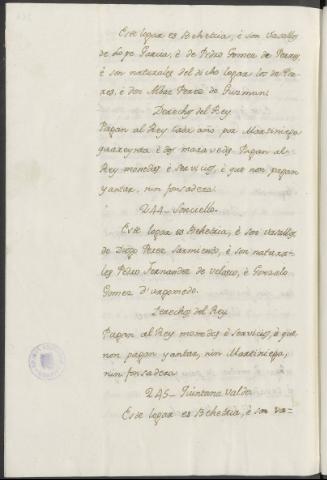 Este logar es Behetria, è son Vasallos
de Lope Garcia, è de Pedro Gomez de Porras,
è son naturales del dicho logar los de Por-
res, è Don Alvar Perez de Guzman.
Derechos del Rey
Pagan al Rey cada año por Martiniega
quarenta è dos maravedis. Pagan al
Rey monedas è servicios, è que non pagan
yantar, nin fonsadera.
244_ Soncillo.
Este logar es Behetria, è son vasallos
de Diego Perez Sarmiento, è son natura-
les Pedro Fernandez de Velasco, è Gonzalo
Gomez
Derechos del Rey
Pagan al Rey monedas è servicios, è que
non pagan yantar, nin Martiniega,
nin fonsadera.
245_ Quintana
Este logar es Behetria, è son va-